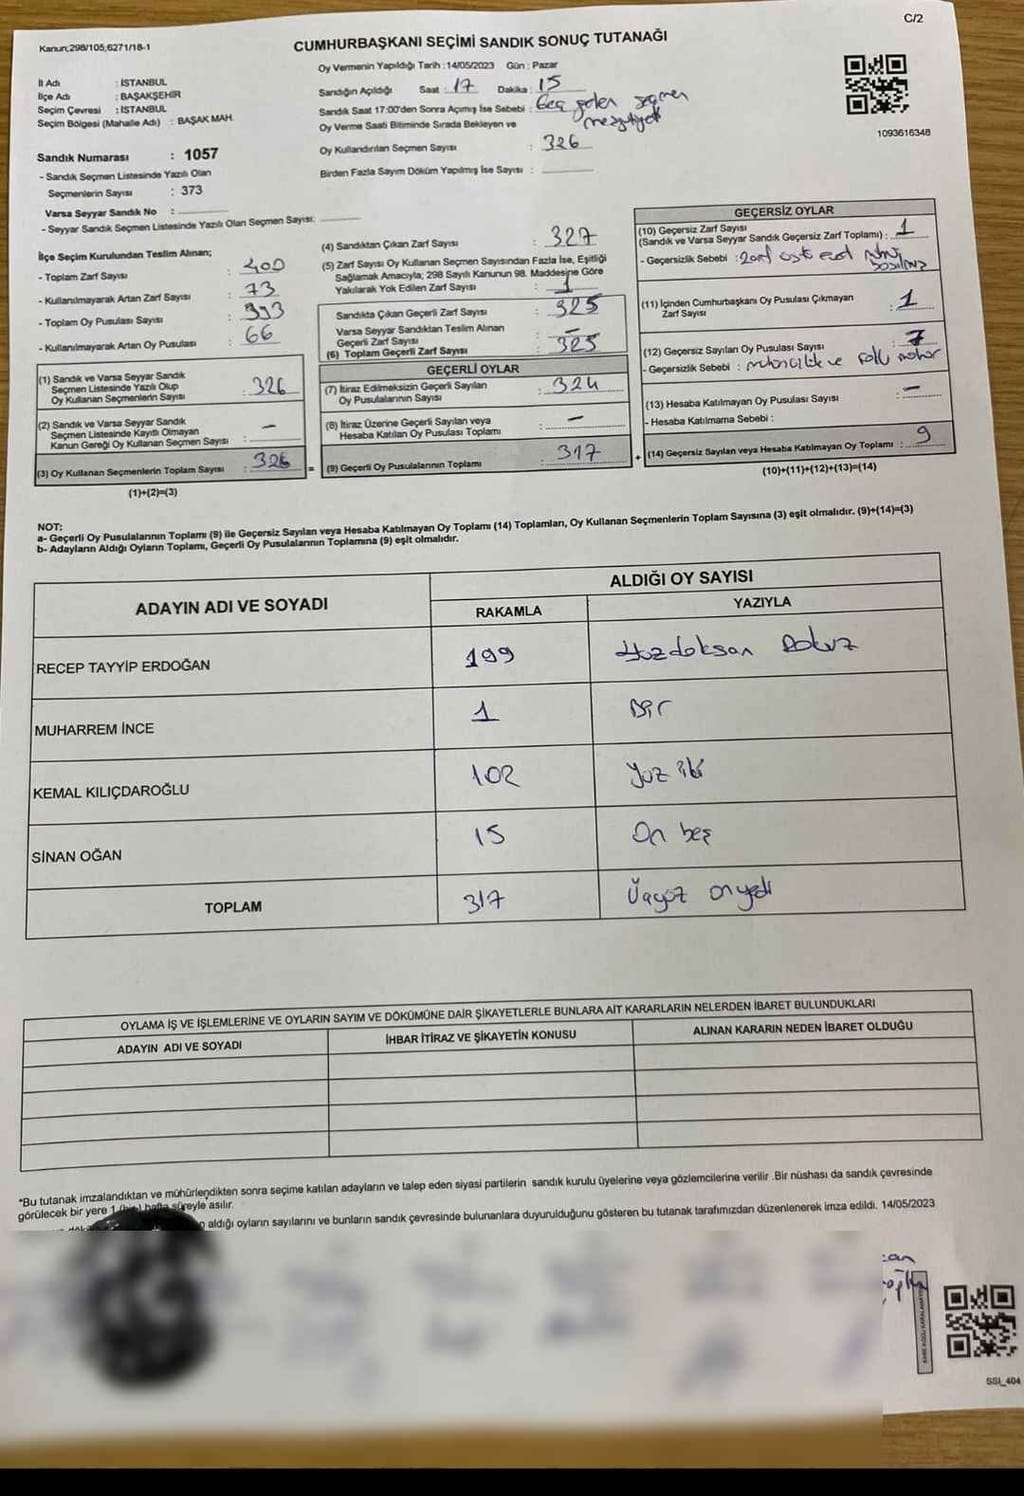 C/2
Kanun;298/105,6271/18-1
CUMHURBAŞKANI SEÇİMİ SANDIK SONUÇ TUTANAĞI
Oy Vermenin Yapıldığı Tarih :14/05/2023 Gün : Pazar
İl Adı : İSTANBUL
İlçe Adı : BAŞAKŞEHİR
Seçim Çevresi : İSTANBUL
Seçim Bölgesi (Mahalle Adı) : BAŞAK MAH.
Sandığın Açıldığı Saat : 17 Dakika : 15
Sandık Saat 17:00'den Sonra Açımış İse Sebebi : Geç gelen seçmen
Oy Verme Saati Bitiminde Sırada Bekleyen ve
Oy Kullandırılan Seçmen Sayısı : 326
Birden Fazla Sayım Döküm Yapılmış İse Sayısı :
1093616348
Sandık Numarası : 1057
- Sandık Seçmen Listesinde Yazılı Olan
Seçmenlerin Sayısı : 373
Varsa Seyyar Sandık No :
- Seyyar Sandık Seçmen Listesinde Yazılı Olan Seçmen Sayısı:
İlçe Seçim Kurulundan Teslim Alınan;
- Toplam Zarf Sayısı : 400
- Kullanılmayarak Artan Zarf Sayısı : 73
- Toplam Oy Pusulası Sayısı : 393
- Kullanılmayarak Artan Oy Pusulası : 66
(1) Sandık ve Varsa Seyyar Sandık
Seçmen Listesinde Yazılı Olup
Oy Kullanan Seçmenlerin Sayısı : 326
(2) Sandık ve Varsa Seyyar Sandık
Seçmen Listesinde Kayıtlı Olmayan
Kanun Gereği Oy Kullanan Seçmen Sayısı : -
(3) Oy Kullanan Seçmenlerin Toplam Sayısı : 326
(1)+(2)=(3)
(4) Sandıktan Çıkan Zarf Sayısı : 327
(5) Zarf Sayısı Oy Kullanan Seçmen Sayısından Fazla İse, Eşitliği
Sağlamak Amacıyla; 298 Sayılı Kanunun 98. Maddesine Göre
Yakılarak Yok Edilen Zarf Sayısı : 1
Sandıkta Çıkan Geçerli Zarf Sayısı : 325
Varsa Seyyar Sandıktan Teslim Alınan
Geçerli Zarf Sayısı : -
(6) Toplam Geçerli Zarf Sayısı : 325
GEÇERLİ OYLAR
(7) İtiraz Edilmeksizin Geçerli Sayılan
Oy Pusulalarının Sayısı : 324
(8) İtiraz Üzerine Geçerli Sayılan veya
Hesaba Katılan Oy Pusulası Toplamı : -
= (9) Geçerli Oy Pusulalarının Toplamı : 317
GEÇERSİZ OYLAR
(10) Geçersiz Zarf Sayısı
(Sandık ve Varsa Seyyar Sandık Geçersiz Zarf Toplamı) : 1
- Geçersizlik Sebebi : Zarf
(11) İçinden Cumhurbaşkanı Oy Pusulası Çıkmayan
Zarf Sayısı : 1
(12) Geçersiz Sayılan Oy Pusulası Sayısı : 7
- Geçersizlik Sebebi : ve
(13) Hesaba Katılmayan Oy Pusulası Sayısı : -
- Hesaba Katılmama Sebebi :
+ (14) Geçersiz Sayılan veya Hesaba Katılmayan Oy Toplamı : 9
(10)+(11)+(12)+(13)=(14)
NOT:
a- Geçerli Oy Pusulalarının Toplamı (9) ile Geçersiz Sayılan veya Hesaba Katılmayan Oy Toplamı (14) Toplamları, Oy Kullanan Seçmenlerin Toplam Sayısına (3) eşit olmalıdır. (9)+(14)=(3)
b- Adayların Aldığı Oyların Toplamı, Geçerli Oy Pusulalarının Toplamına (9) eşit olmalıdır.
ADAYIN ADI VE SOYADI ALDIĞI OY SAYISI
RAKAMLA YAZIYLA
RECEP TAYYİP ERDOĞAN 199 Yüzdoksan Dokuz
MUHARREM İNCE 1 Bir
KEMAL KILIÇDAROĞLU 102 Yüz iki
SİNAN OĞAN 15 On beş
TOPLAM 317 Üçyüz onyedi
OYLAMA İŞ VE İŞLEMLERİNE VE OYLARIN SAYIM VE DÖKÜMÜNE DAİR ŞİKAYETLERLE BUNLARA AİT KARARLARIN NELERDEN İBARET BULUNDUKLARI
ADAYIN ADI VE SOYADI İHBAR İTİRAZ VE ŞİKAYETİN KONUSU ALINAN KARARIN NEDEN İBARET OLDUĞU
*Bu tutanak imzalandıktan ve mühürlendikten sonra seçime katılan adayların ve talep eden siyasi partilerin sandık kurulu üyelerine veya gözlemcilerine verilir .Bir nüshası da sandık çevresinde
görülecek bir yere 1 (bir) hafta süreyle asılır.
aldığı oyların sayılarını ve bunların sandık çevresinde bulunanlara duyurulduğunu gösteren bu tutanak tarafımızdan düzenlenerek imza edildi. 14/05/2023
SSI_404